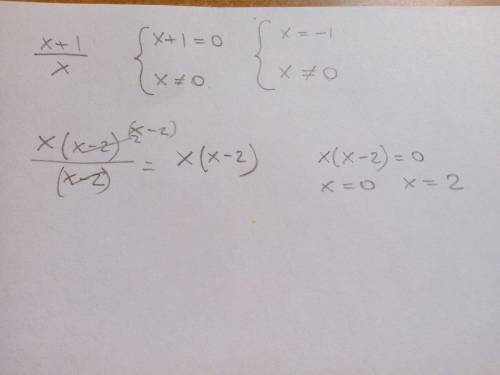 x+1 / x { x+1=0 x≠0 { x=-1 x≠0
x(x-2)² (x-2) / (x-2) = x(x-2) x(x-2)=0
x=0 x=2